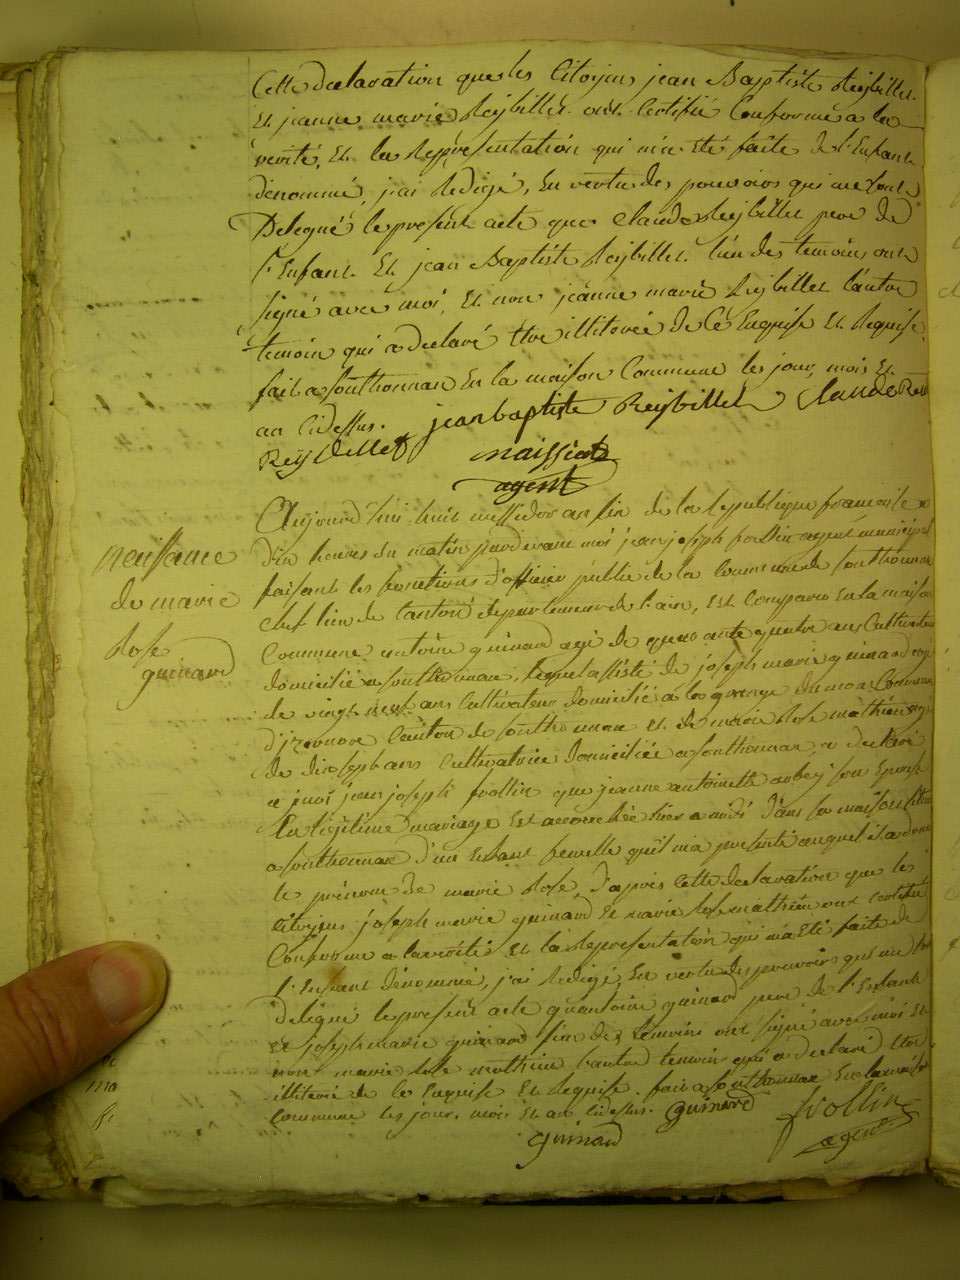 Cette declaration que les Citoyens jean Baptiste Reybillet
Et jeanne marie Reybillet ont Certifié Conforme a la
verité, Et la Representation qui m'a Eté faite de l'Enfant
dénommé, j'ai Redigé, En vertu des pouvoirs qui me sont
Delegué le present acte que claude Reybillet pere de
l'Enfant Et jean Baptiste Reybillet l'un des temoins ont
signé avec moi, Et non jeanne marie Reybillet l'autre
temoin qui a declaré Etre illiterée de Ce Enquise Et Requise
fait a sonthonnax En la maison Commune les jour, mois Et
an Cidessus. jean baptiste Reybillet claude Rei
Reybillet
naissiat
agent
naissance
de marie
Rose
guinard
Aujourd'hui huit messidor an six de la Republique francaise a
dix heures du matin pardevant moi jean joseph frollin agent municipal
faisant les fonctions d'officier public de la Commune de sonthonnax
chef lieu de Canton departement de l'ain, Est Comparu En la maison
Commune antoine guinard agé de quarante quatre ans Cultivateur
domicilié a sonthonnax, lequel assisté de joseph marie guinard agé
de vingt neuf ans Cultivateur domicilié a la grange du mon Commune
d'izernore Canton de sonthonnax et de marie Rose mathieu agé
de dix sept ans Cultivatrice domiciliée a sonthonnax, a declaré
a moi jean joseph frollin que jeanne antoinette aubey son Epouse
En légitime mariage Est accouchée hier a midi dans sa maison située
a sonthonnax d'un Enfant femelle qu'il m'a presenté auquel il a donné
le prénom de marie Rose, d'après Cette declaration que le
Citoyens joseph marie guinard Et marie Rose mathieu ont Certifié
Conforme a la verité Et la Representation qui m'a Eté faite de
l'Enfant dénommé, j'ai Redigé, En vertu des pouvoirs qui me sont
delegué le present acte qu'antoine guinard pere de l'Enfant
et joseph marie guinard l'un des temoins ont signé avec moi Et
non marie Rose mathieu l'autre temoin qui a declaré Etre
illiteré de Ce Enquise Et Requise. fait a sonthonnax En la maison
Commune les jour, mois Et an Cidessus. guinard
guinard
frollin
agent